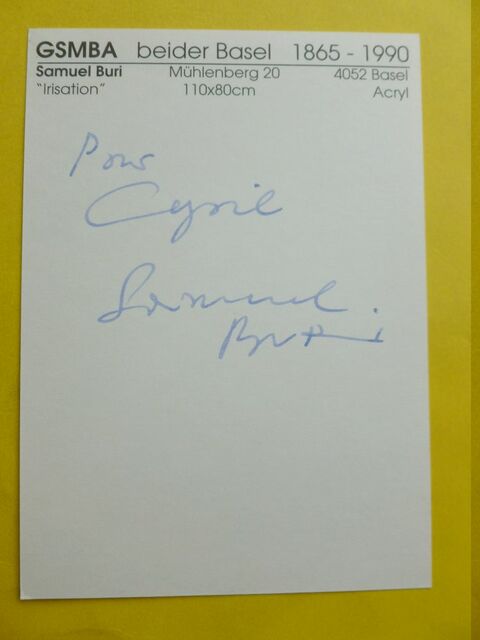 GSMBA beider Basel 1865 - 1990
Samuel Buri Mühlenberg 20 4052 Basel
"Irisation" 110x80cm Acryl
Pour
Cyril
Samuel
Buri